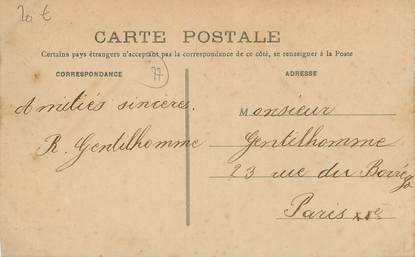 20 €
CARTE POSTALE
Certains pays étrangers n'acceptant pas la correspondance de ce côté, se renseigner à la Poste
CORRESPONDANCE
77
ADRESSE
Amitiés sincères.
R. Gentilhomme
Monsieur
Gentilhomme
23 rue du Borrégo
Paris xxe